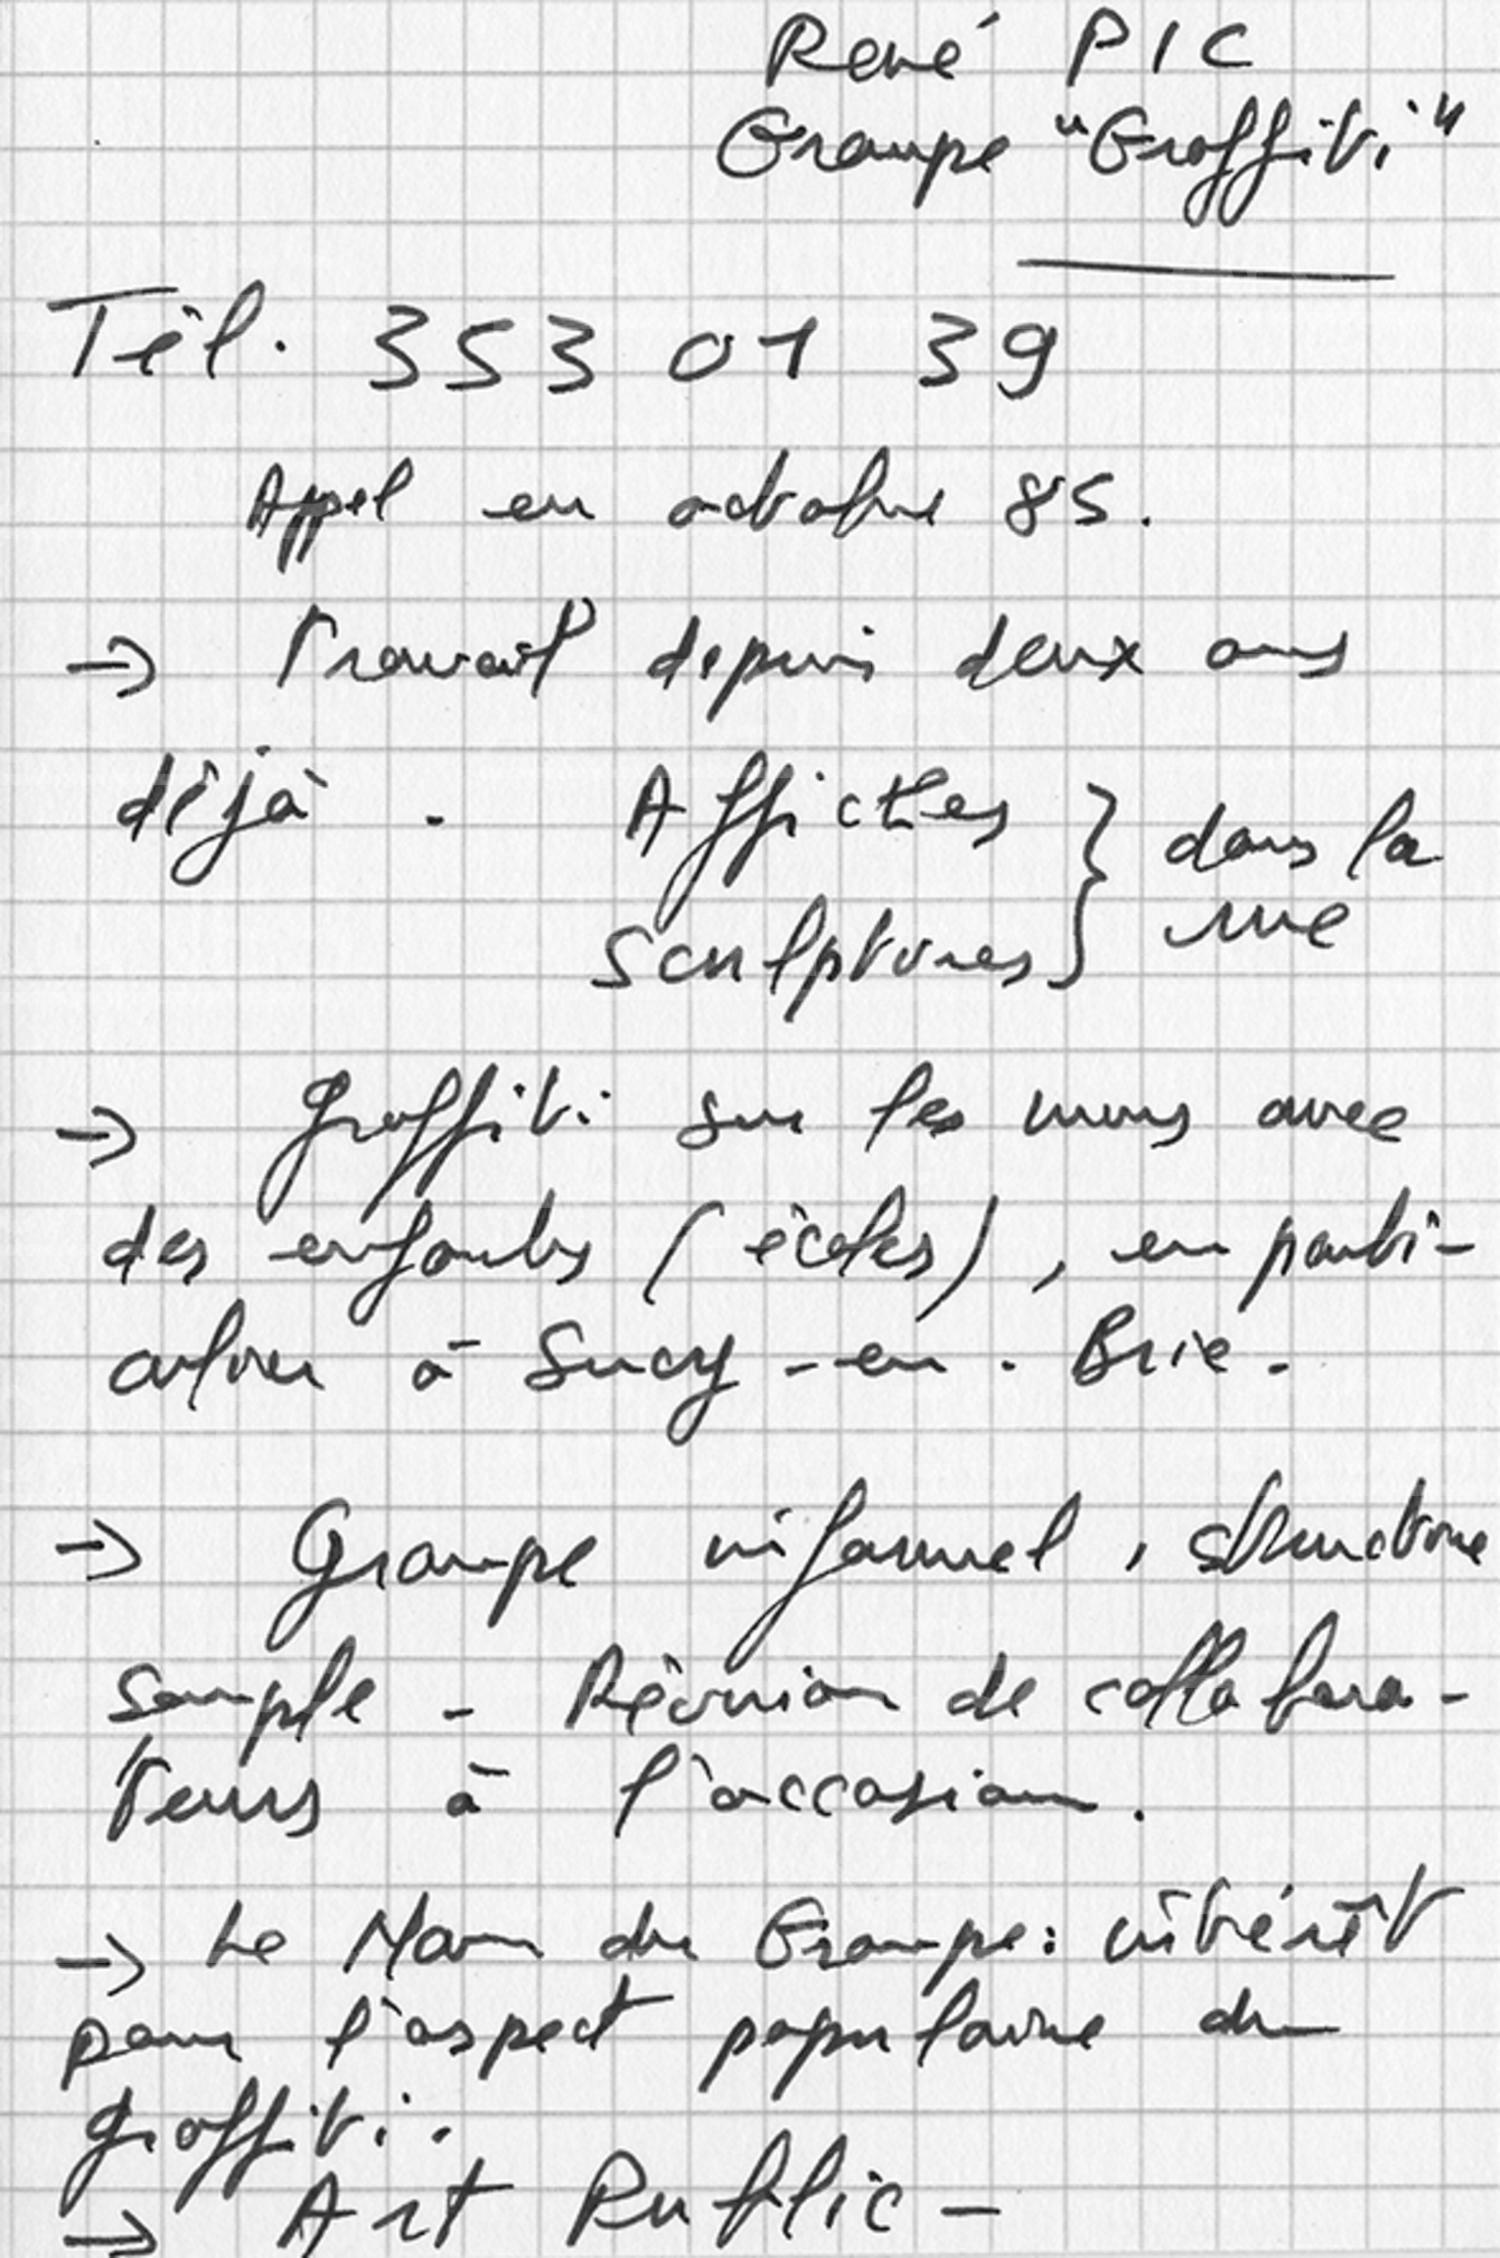 René PIC
Groupe "Graffiti"
Tél. 353 01 39
Appel en octobre 85.
→ Travail depuis deux ans
déjà. Affiches } dans la
Sculptures } rue
→ graffiti sur les murs avec
des enfants (écoles), en parti-
culier à Sucy-en-Brie.
→ Groupe informel, structure
souple - Réunion de collabora-
teurs à l'occasion.
→ Le Nom du Groupe: intérêt
pour l'aspect populaire du
graffiti.
→ Art Public -